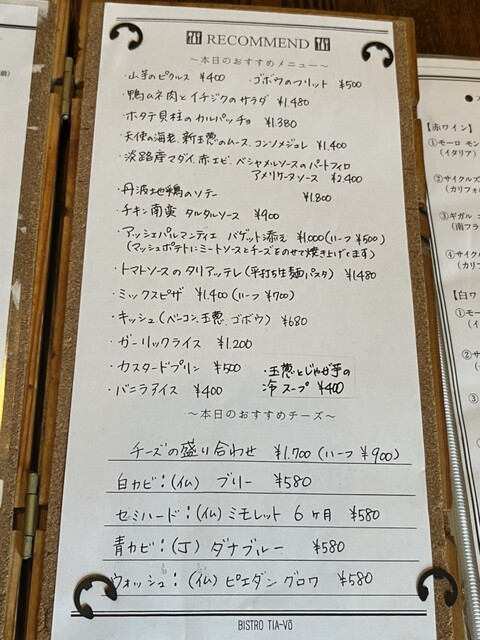 RECOMMEND
～本日のおすすめメニュー～
・山芋のピクルス ¥400 ・ゴボウのフリット ¥500
・鴨ムネ肉とイチジクのサラダ ¥1.480
・ホタテ貝柱のカルパッチョ ¥1.380
・天使の海老、新玉葱のムース、コンソメジュレ ¥1.400
・淡路産マダイ、赤エビ、ベシャメルソースのパートフィロ
アメリケーヌソース ¥2.400
・丹波地鶏のソテー ¥1.800
・チキン南蛮 タルタルソース ¥900
・アッシェパルマンティエ バゲット添え ¥1.000(ハーフ ¥500)
(マッシュポテトにミートソースとチーズをのせて焼き上げてます)
・トマトソースのタリアッテレ(平打ち生麺パスタ) ¥1.480
・ミックスピザ ¥1.400(ハーフ ¥700)
・キッシュ(ベーコン、玉葱、ゴボウ) ¥680
・ガーリックライス ¥1.200
・カスタードプリン ¥500
・バニラアイス ¥400
・玉葱とじゃが芋の
冷スープ ¥400
～本日のおすすめチーズ～
チーズの盛り合わせ ¥1.700(ハーフ ¥900)
白カビ:(仏) ブリー ¥580
セミハード:(仏) ミモレット 6ヶ月 ¥580
青カビ:(丁) ダナブルー ¥580
ウォッシュ:(仏) ピエダングロワ ¥580
BISTRO TIA-VŌ
【赤ワイン】
①モーロ モン
(イタリア)
②サイクルズ
(カリフォ
③ギガル
(南フラ
④サイクル
(カリ
【白ワ
①モー
②サ